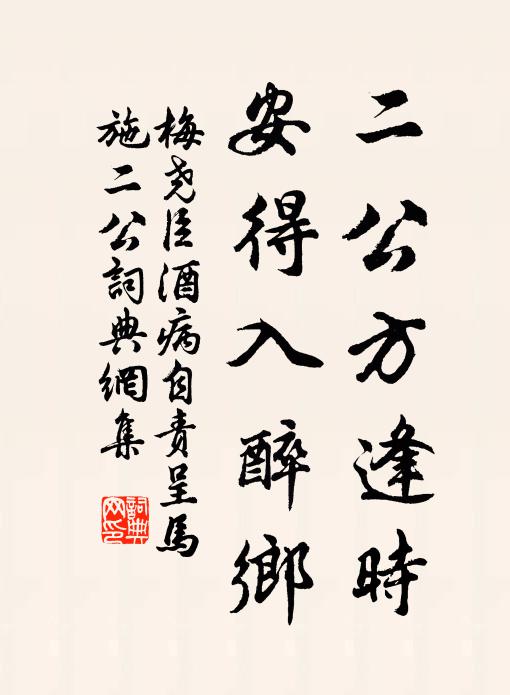 二公方逢時
安得入醉鄉
梅尧臣酒病自責呈馬
施二公詞典網集
詞典
网印